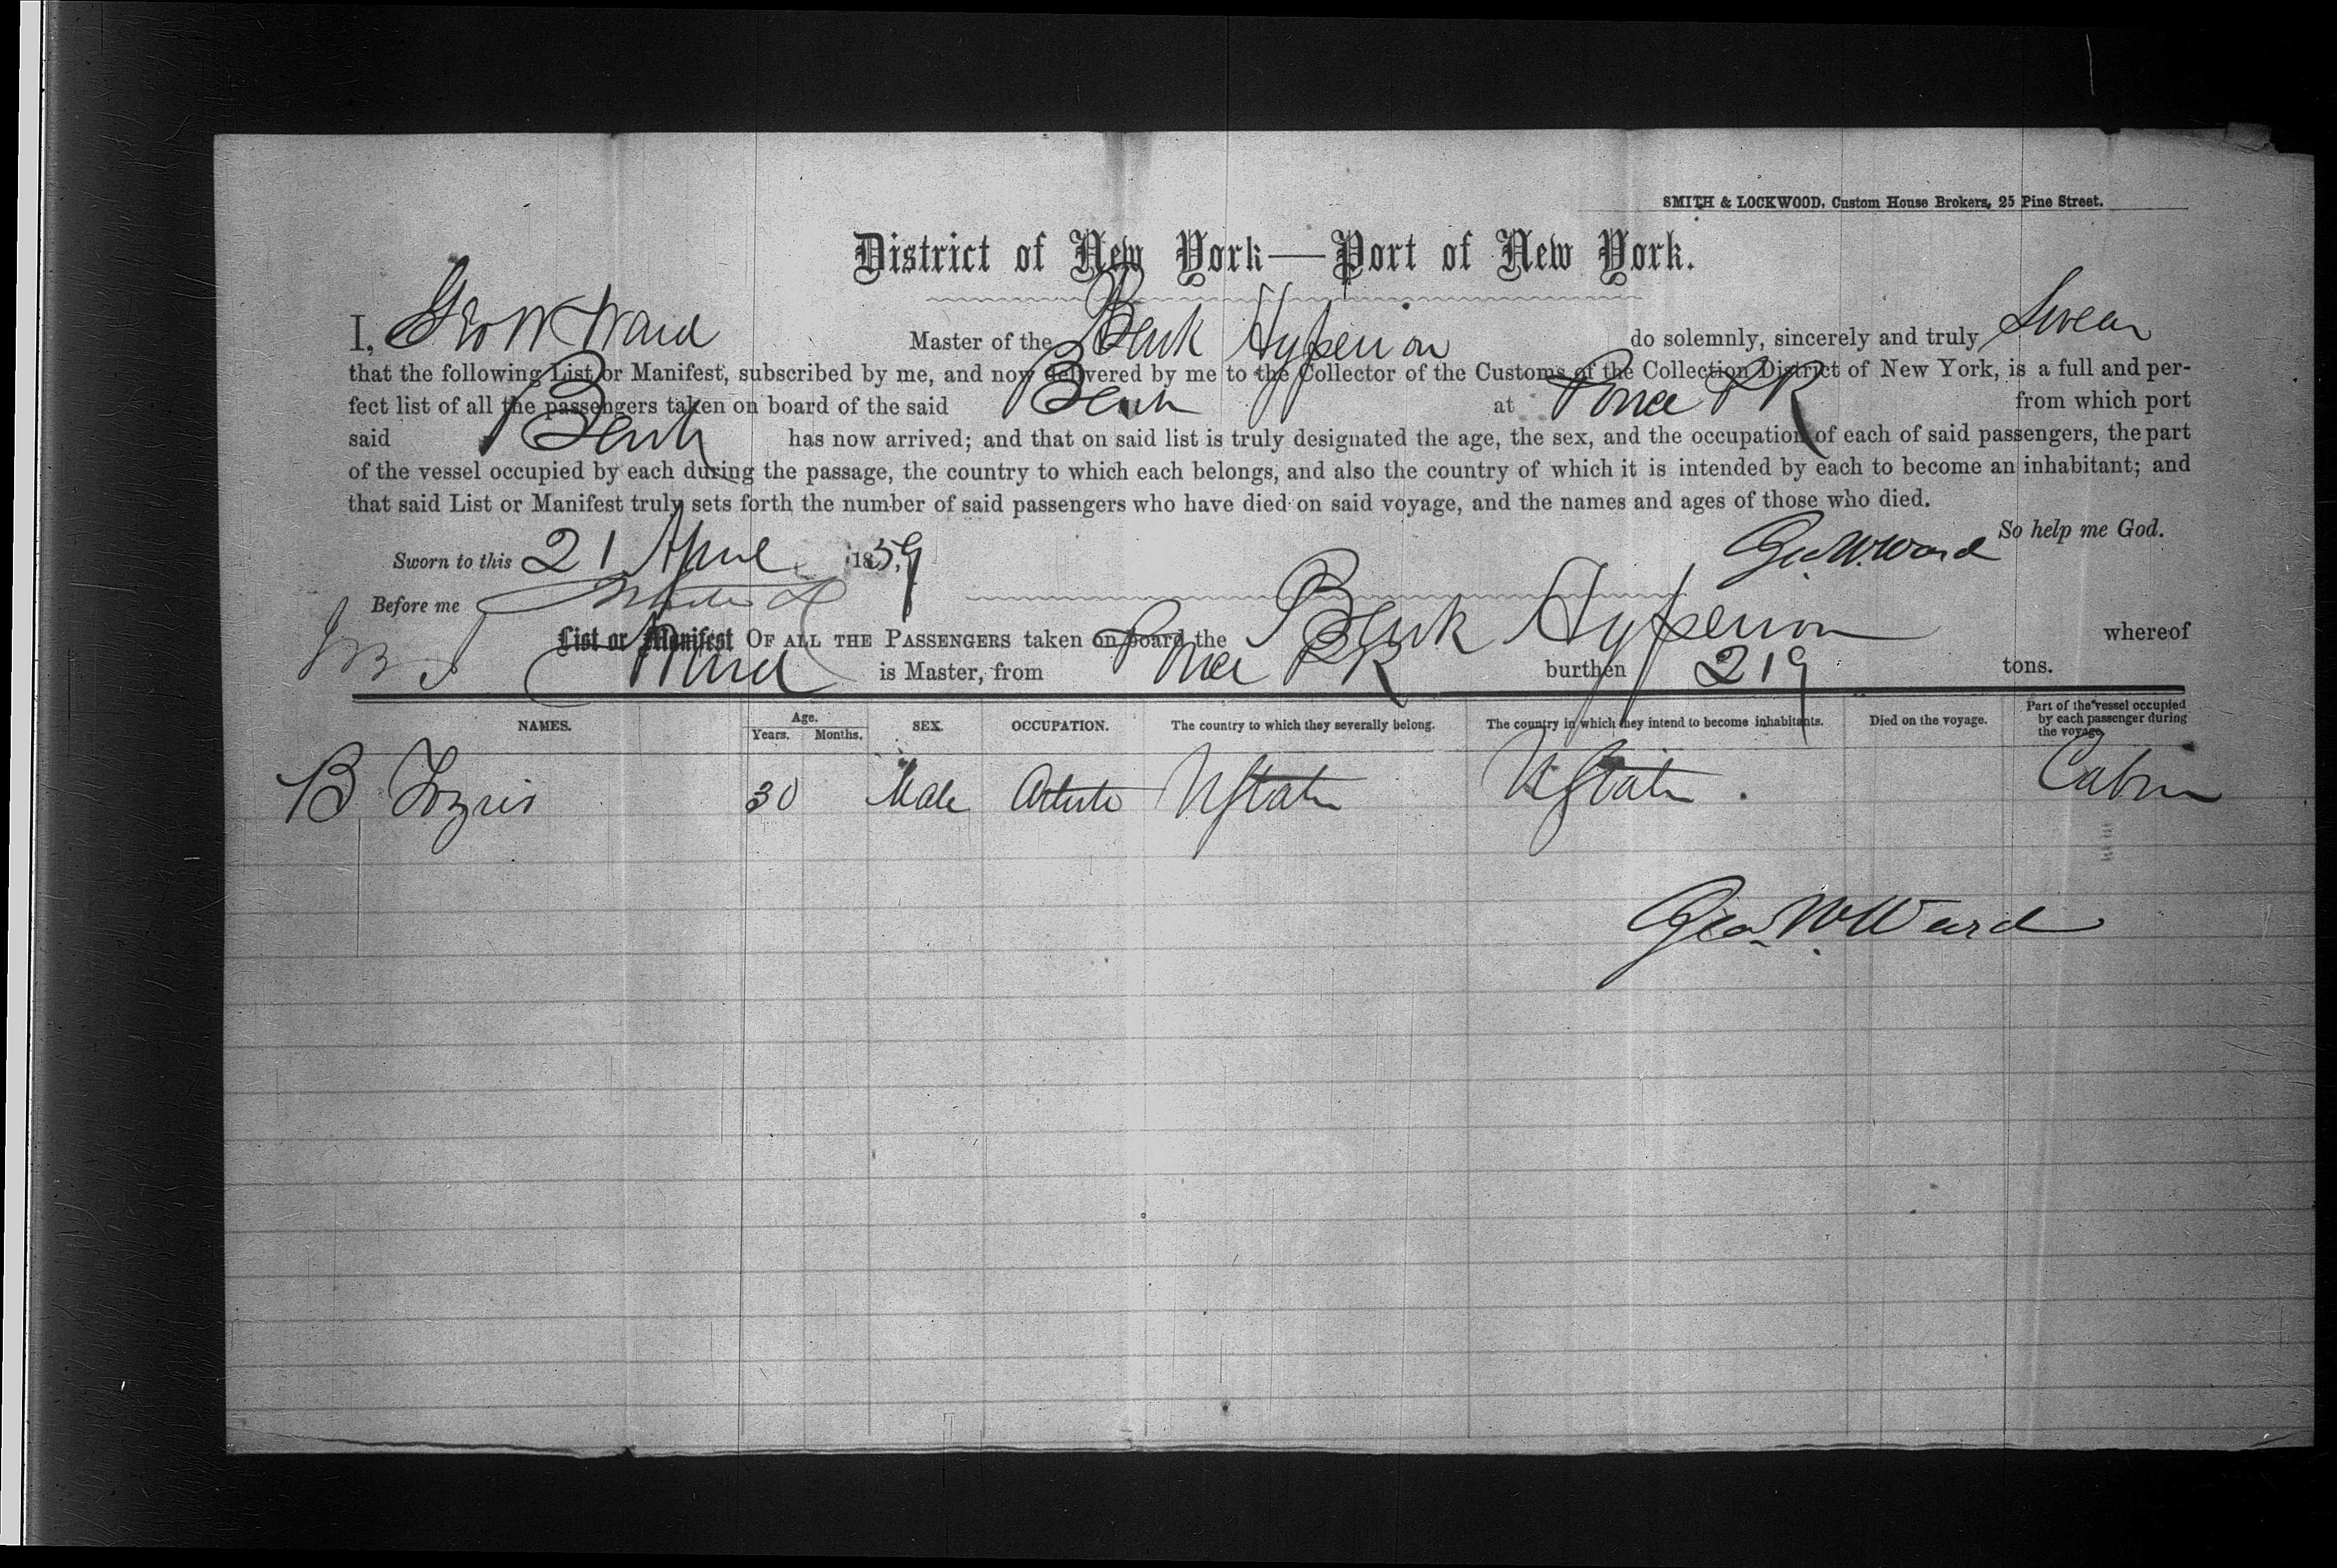 SMITH & LOCKWOOD, Custom House Brokers, 25 Pine Street.
District of New York—Port of New York.
I, Geo W Ward Master of the Bark Hyperion do solemnly, sincerely and truly Swear
that the following List or Manifest, subscribed by me, and now delivered by me to the Collector of the Customs of the Collection District of New York, is a full and per-
fect list of all the passengers taken on board of the said Bark at Ponce P R from which port
said Bark has now arrived; and that on said list is truly designated the age, the sex, and the occupation of each of said passengers, the part
of the vessel occupied by each during the passage, the country to which each belongs, and also the country of which it is intended by each to become an inhabitant; and
that said List or Manifest truly sets forth the number of said passengers who have died on said voyage, and the names and ages of those who died.
So help me God.
Sworn to this 21 April 1859 Geo. W. Ward
Before me
List or Manifest OF ALL THE PASSENGERS taken on board the Bark Hyperion whereof
Ward is Master, from Ponce P R burthen 219 tons.
NAMES. Age. Years. Months. SEX. OCCUPATION. The country to which they severally belong. The country in which they intend to become inhabitants. Died on the voyage. Part of the vessel occupied by each passenger during the voyage.
B 30 Male UStates UStates. Cabin
Geo. W Ward